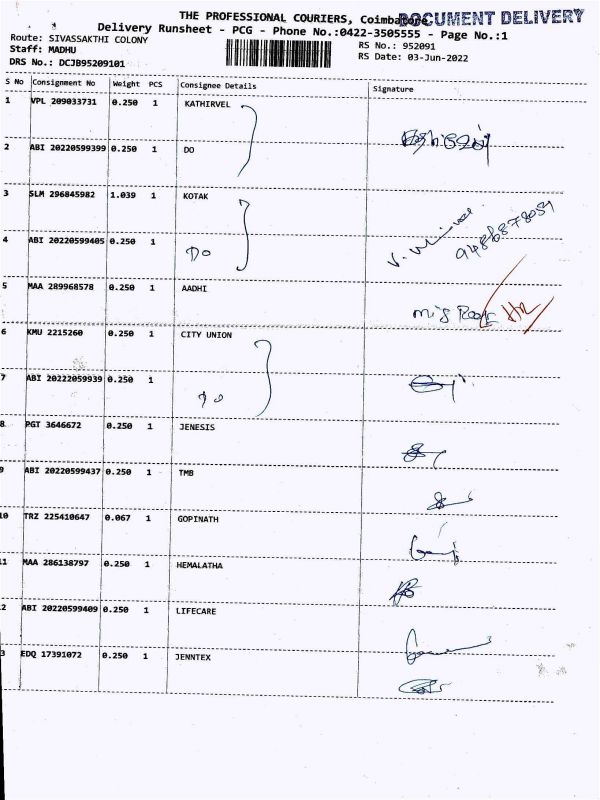 THE PROFESSIONAL COURIERS, Coimbatore
DOCUMENT DELIVERY
Delivery Runsheet - PCG - Phone No.:0422-3505555 - Page No.:1
Route: SIVASSAKTHI COLONY
RS No.: 952091
Staff: MADHU
RS Date: 03-Jun-2022
DRS No.: DCJB95209101
S No Consignment No Weight PCS Consignee Details Signature
1 VPL 209033731 0.250 1 KATHIRVEL
2 ABI 20220599399 0.250 1 DO
3 SLM 296845982 1.039 1 KOTAK
9486878059
4 ABI 20220599405 0.250 1 DO
5 MAA 289968578 0.250 1 AADHI
6 KMU 2215260 0.250 1 CITY UNION
7 ABI 20222059939 0.250 1 DO
8 PGT 3646672 0.250 1 JENESIS
9 ABI 20220599437 0.250 1 TMB
10 TRZ 225410647 0.067 1 GOPINATH
11 MAA 286138797 0.250 1 HEMALATHA
2 ABI 20220599409 0.250 1 LIFECARE
3 EDQ 17391072 0.250 1 JENNTEX